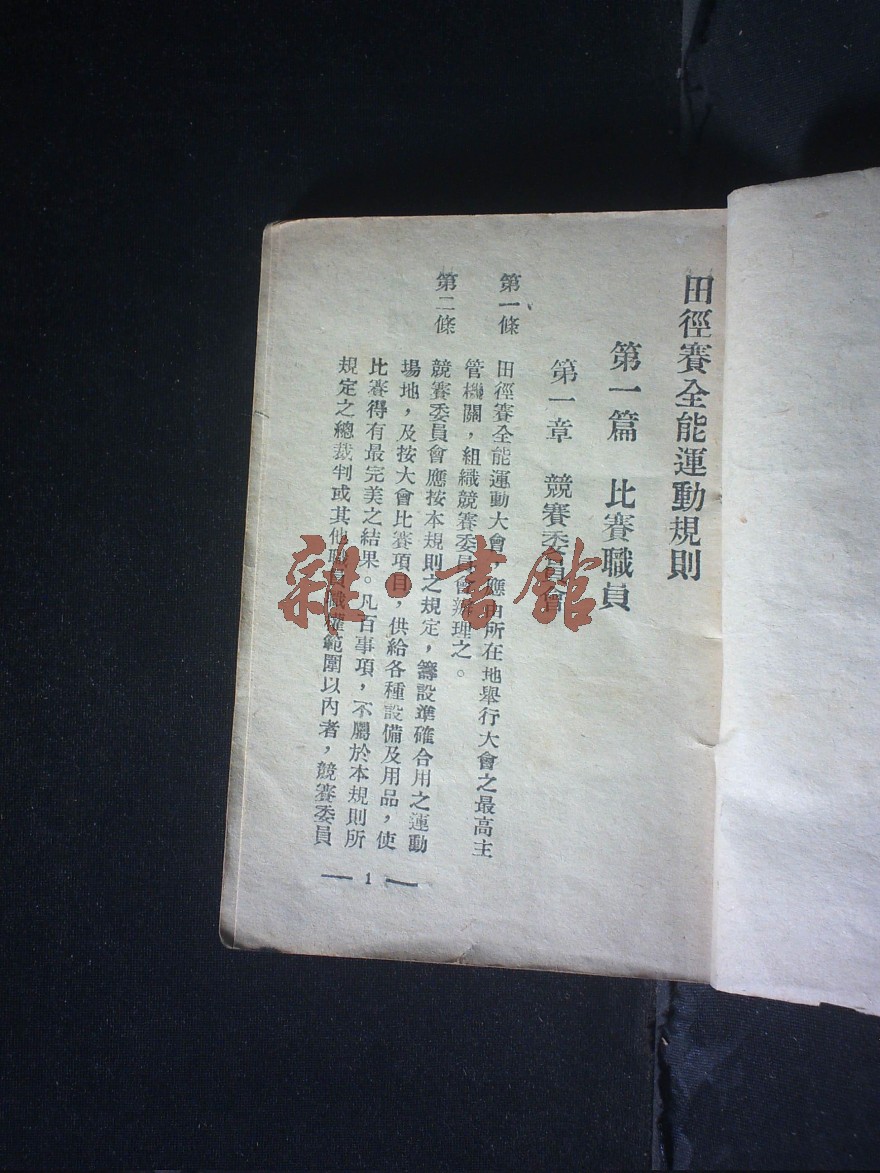 田徑賽全能運動規則
第一篇 比賽職員
第一章 競賽委員會
第一條 田徑賽全能運動大會，應由所在地舉行大會之最高主
管機關，組織競賽委員會辦理之。
第二條 競賽委員會應按本規則之規定，籌設準確合用之運動
場地，及按大會比賽項目，供給各種設備及用品，使
比賽得有最完美之結果。凡百事項，不屬於本規則所
規定之總裁判或其他職員職權範圍以內者，競賽委員
— 1 —
雜·書館